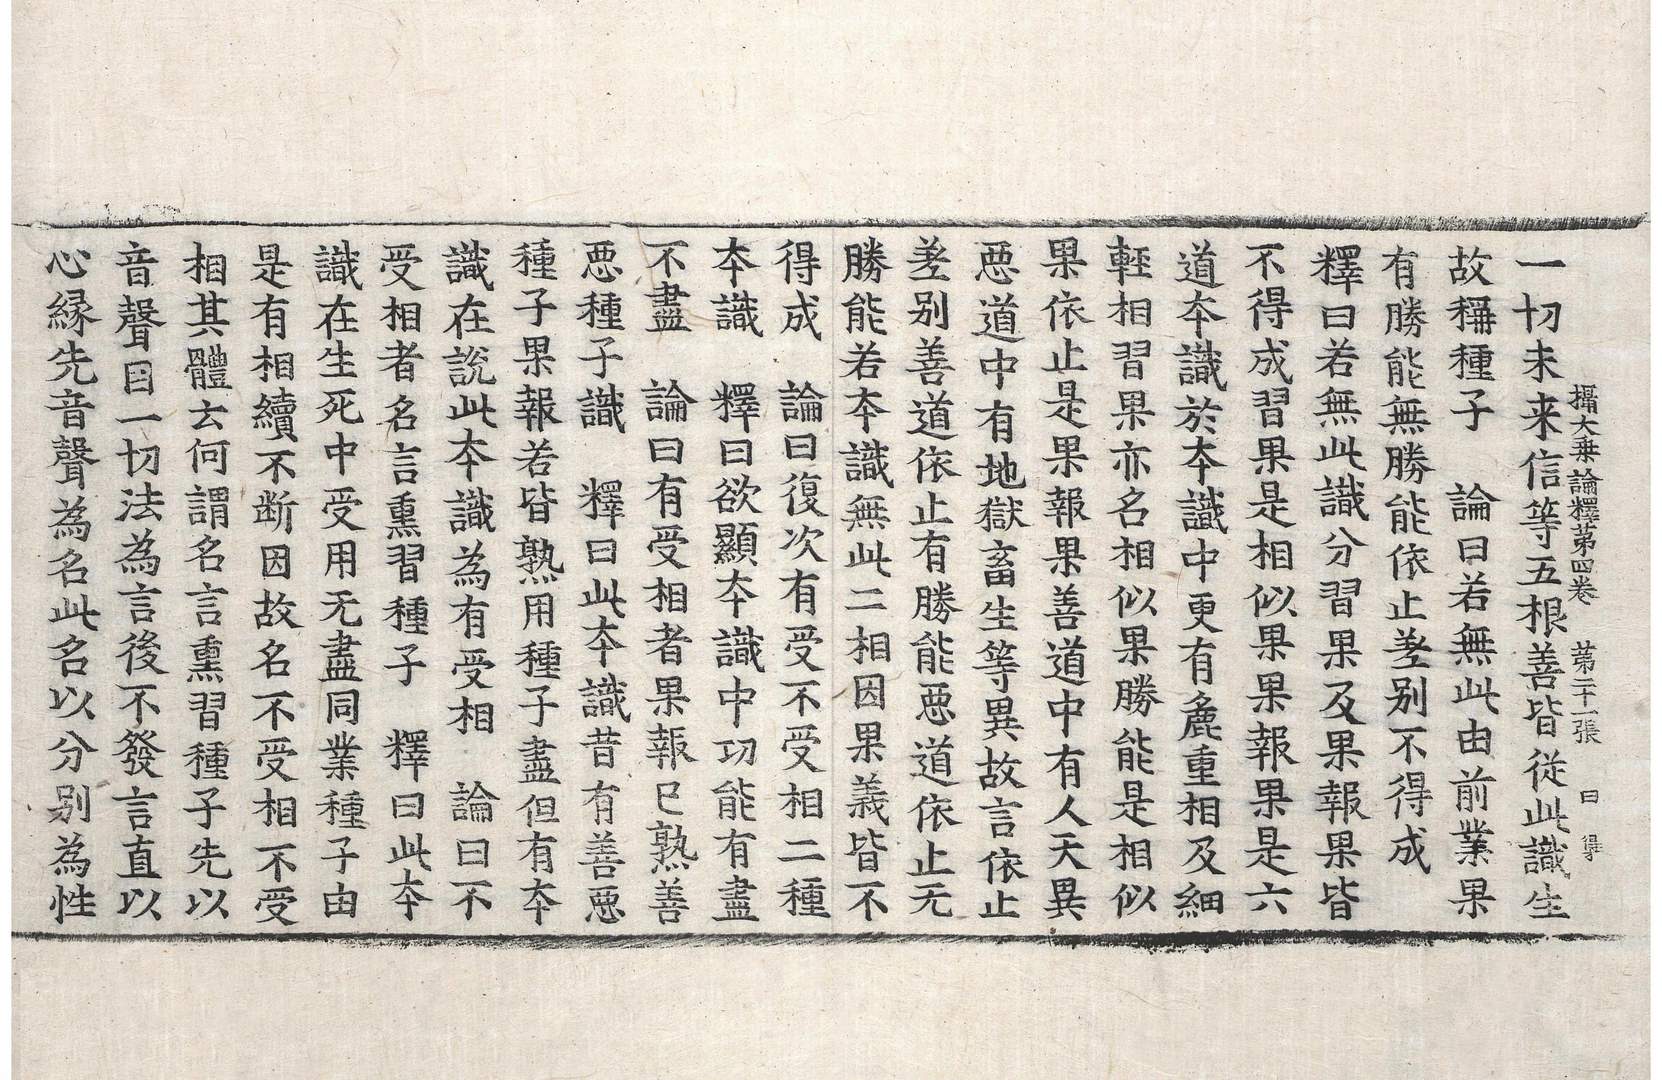 攝大乗論釋第四巻 第二十一張 曰
一切未来信等五根善皆從此識生
故稱種子 論曰若無此由前業果
有勝能無勝能依止差别不得成
釋曰若無此識分習果及果報果皆
不得成習果是相似果果報果是六
道夲識於夲識中更有麁重相及細
輕相習果亦名相似果勝能是相似
果依止是果報果善道中有人天異
惡道中有地獄畜生等異故言依止
差别善道依止有勝能惡道依止无
勝能若夲識無此二相因果義皆不
得成 論曰復次有受不受相二種
夲識 釋曰欲顯夲識中功能有盡
不盡 論曰有受相者果報已熟善
惡種子識 釋曰此夲識昔有善惡
種子果報若皆熟用種子盡但有夲
識在說此夲識為有受相 論曰不
受相者名言熏習種子 釋曰此夲
識在生死中受用无盡同業種子由
是有相續不断因故名不受相不受
相其體云何謂名言熏習種子先以
音聲目一切法為言後不發言直以
心縁先音聲為名此名以分别為性